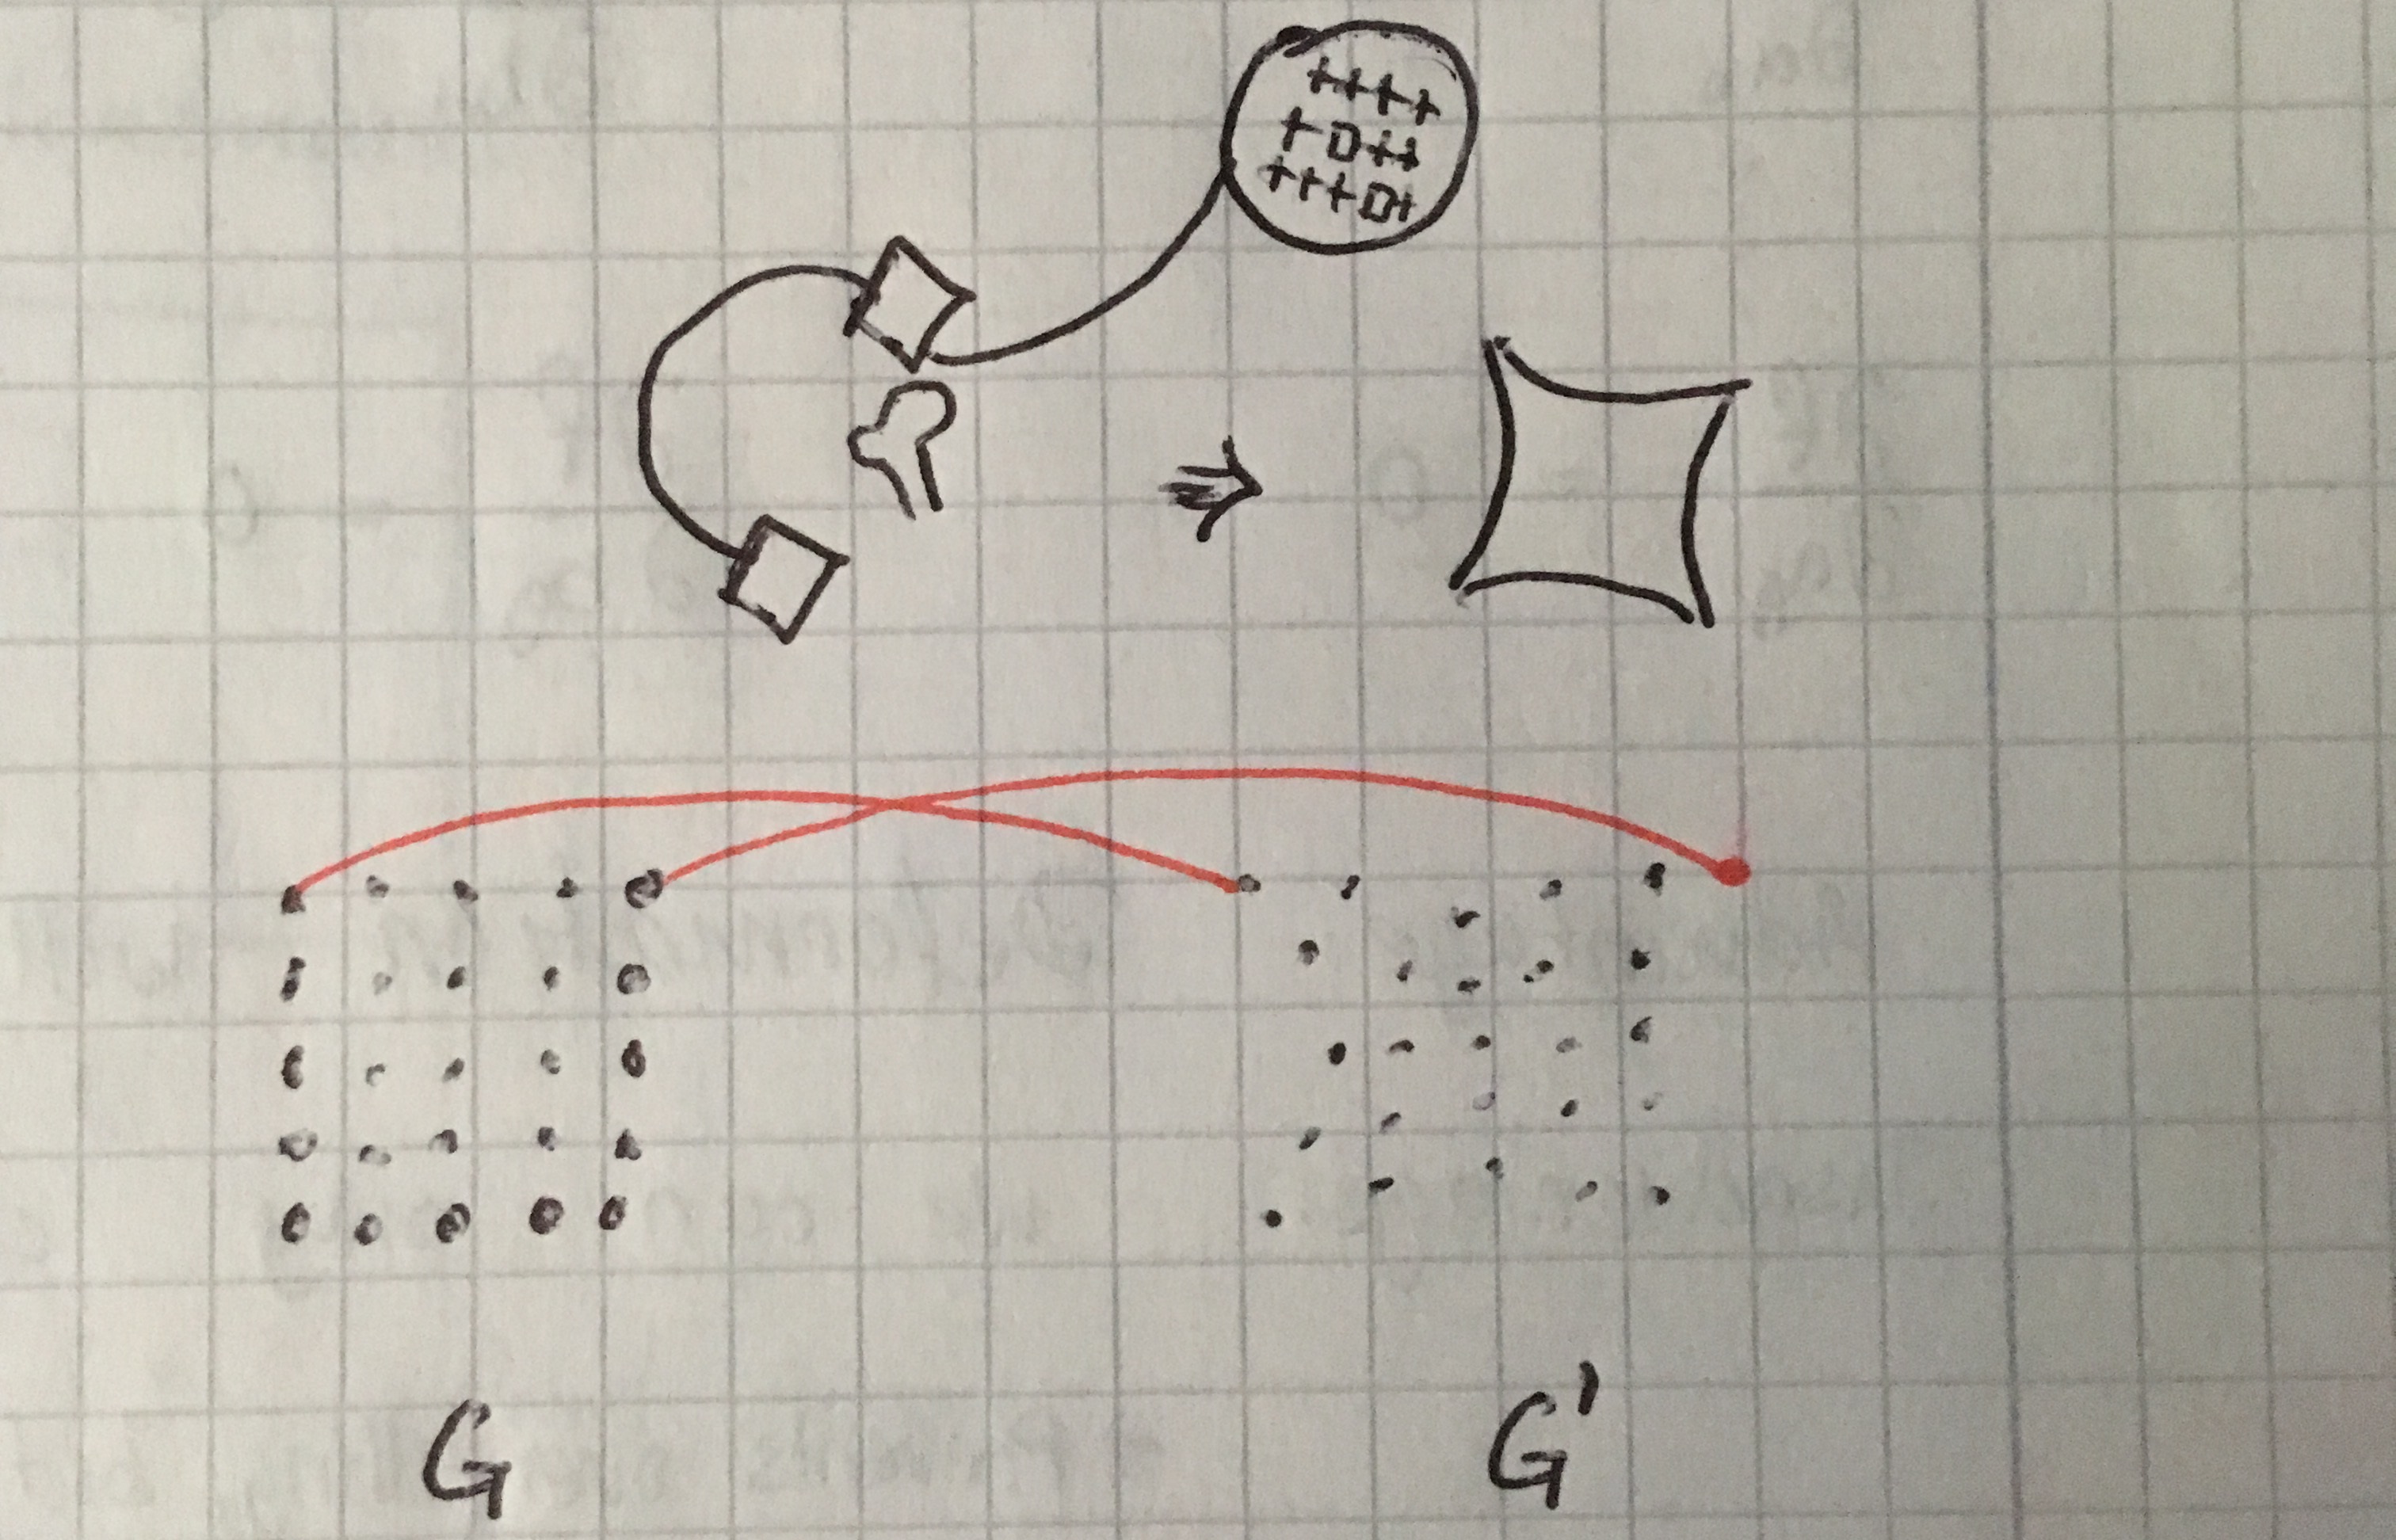 G
G'